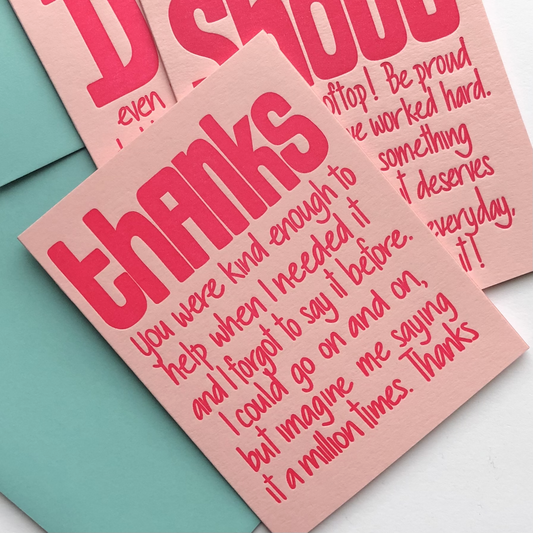 thANKS
you were kind enough to
help when I needed it
and I forgot to say it before.
I could go on and on,
but imagine me saying
it a million times. Thanks
Shout
oftop! Be proud
worked hard.
something
deserves
everyday,
it!
D
even